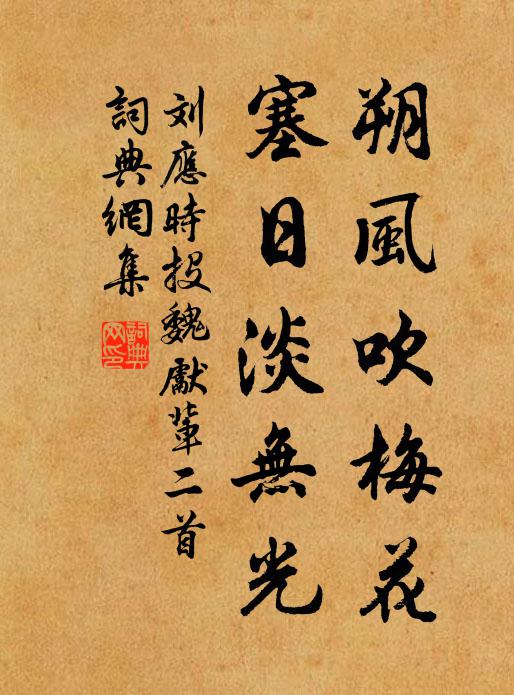 朔風吹梅花
塞日淡無光
刘應時投魏獻輩二首
詞典網集
詞典网印